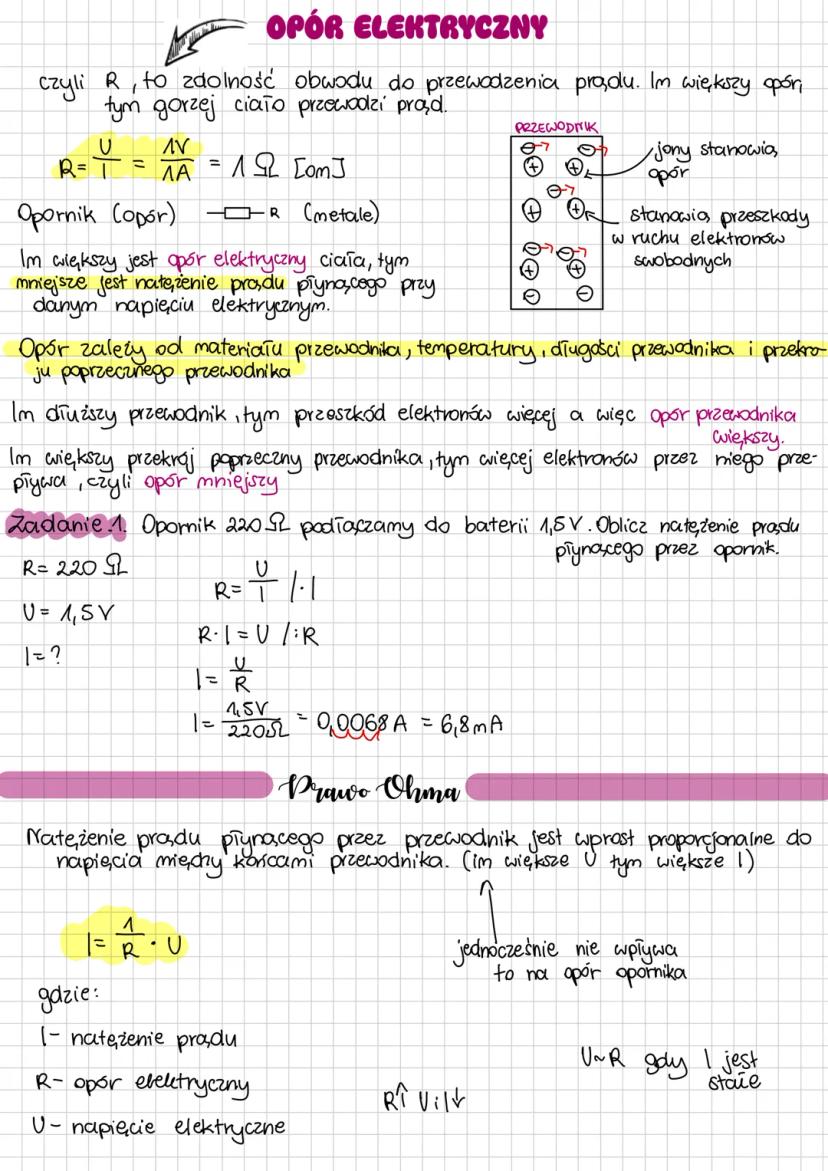 OPÓR ELEKTRYCZNY
czyli R, to zdolność obwodu do przewodzenia prądu. Im większy opór,
tym gorzej ciało przewodzi prąd.
R= U/I = 1V/1A = 1 Ω [om]
PRZEWODNIK
jony stanowią
opór
Opornik (opór) R (metale)
stanowią przeszkody
w ruchu elektronów
swobodnych
Im większy jest opór elektryczny ciała, tym
mniejsze jest natężenie prądu płynącego przy
danym napięciu elektrycznym.
Opór zależy od materiału przewodnika, temperatury, długości przewodnika i przekro-
ju poprzecznego przewodnika
Im dłuższy przewodnik, tym przeszkód elektronów więcej a więc opór przewodnika
większy.
Im większy przekrój poprzeczny przewodnika, tym więcej elektronów przez niego prze-
pływa, czyli opór mniejszy
Zadanie.1. Opornik 220 Ω podłączamy do baterii 1,5V. Oblicz natężenie prądu
płynącego przez opornik.
R= 220 Ω
U= 1,5V
I=?
R= U/I /·I
R·I=U /:R
I= U/R
I= 1,5V/220Ω = 0,0068A = 6,8mA
Prawo Ohma
Natężenie prądu płynącego przez przewodnik jest wprost proporcjonalne do
napięcia między końcami przewodnika. (im większe U tym większe I)
jednocześnie nie wpływa
to na opór opornika
I= 1/R · U
gdzie:
I- natężenie prądu
R- opór elektryczny
U- napięcie elektryczne
R↑ U i I↓
U~R gdy I jest
stałe